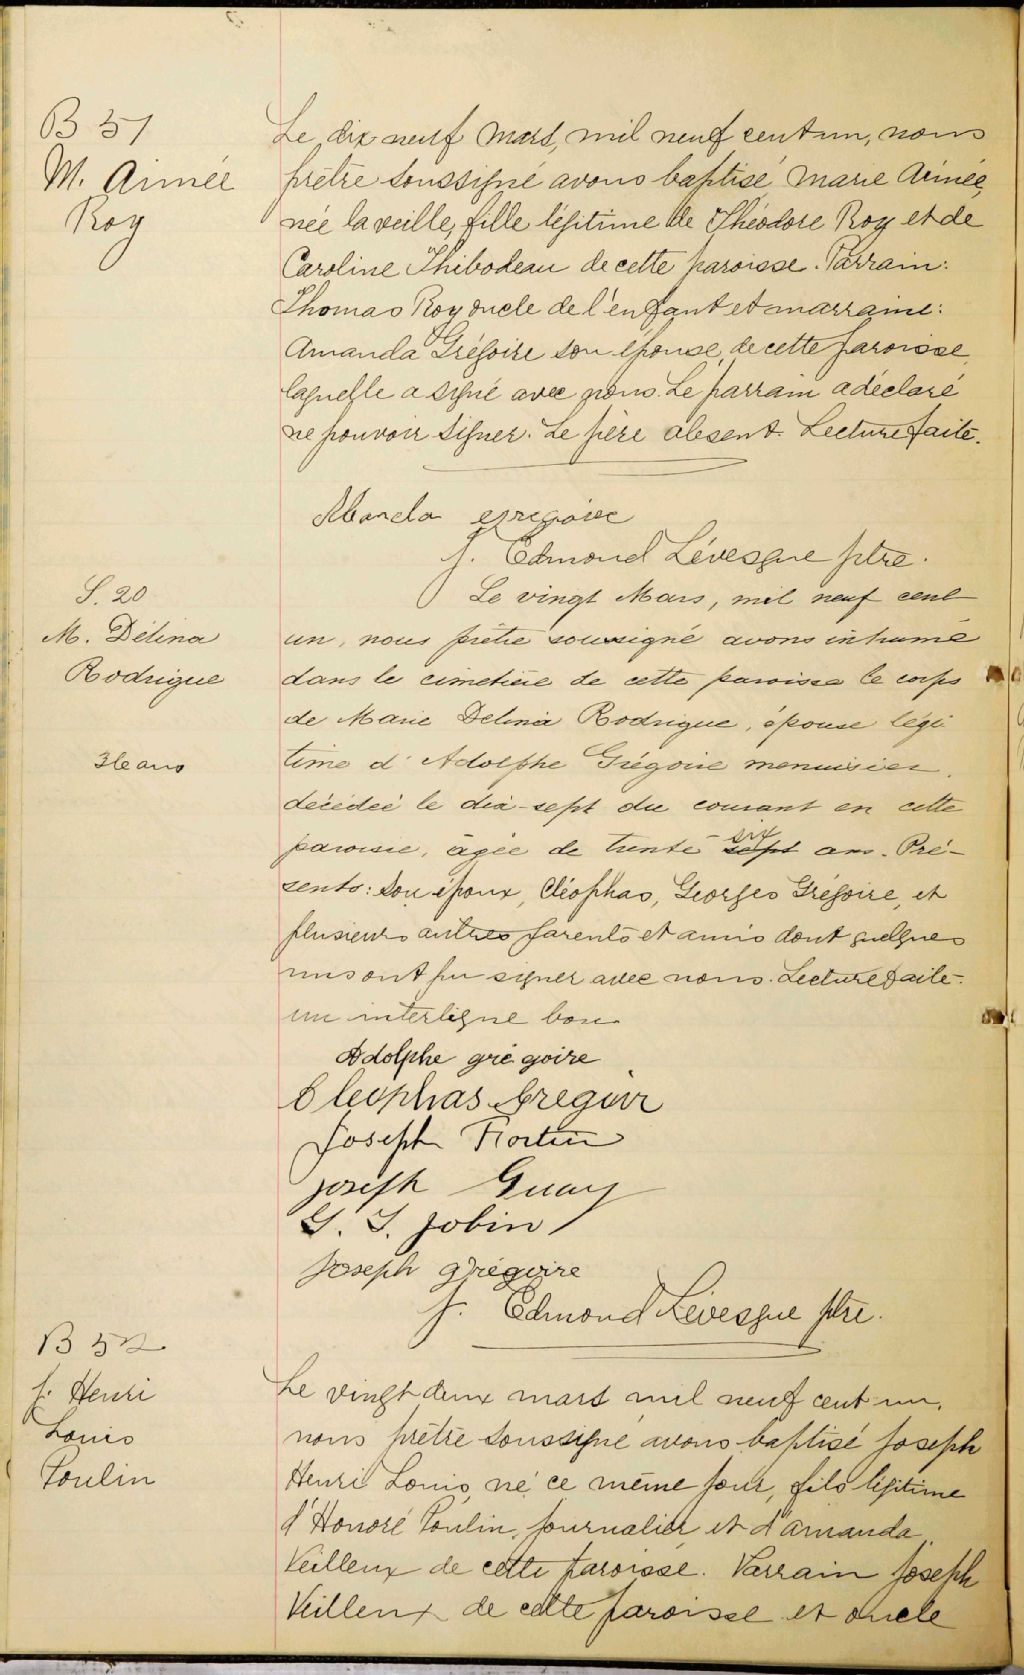 B 51
M. Aimée
Roy
Le dix neuf Mars, mil neuf cent un, nous
prêtre soussigné avons baptisé Marie Aimée,
née la veille, fille légitime de Théodore Roy et de
Caroline Thibodeau de cette paroisse. Parrain:
Thomas Roy oncle de l'enfant et marraine:
Amanda Grégoire son épouse, de cette paroisse,
laquelle a signé avec nous. Le parrain a déclaré
ne pouvoir signer. Le père absent. Lecture faite.
J. Edmond Lévesque ptre.
S. 20
M. Délina
Rodrigue
36 ans
Le vingt Mars, mil neuf cent
un, nous prêtre soussigné avons inhumé
dans le cimetière de cette paroisse le corps
de Marie Delina Rodrigue, épouse légi
time d'Adolphe Grégoire menuisier,
décédée le dix-sept du courant en cette
paroisse, âgée de trente six
sept ans. Pré-
sents: son époux, Cléophas, Georges Grégoire, et
plusieurs autres parents et amis dont quelques
uns ont pu signer avec nous. Lecture faite.
un interligne bon
Adolphe grégoire
Cleophas Gregoir
Joseph Fortin
Joseph Guay
G. T. Jobin
Joseph grégoire
J. Edmond Lévesque ptre.
B 52
J. Henri
Louis
Poulin
Le vingt deux mars mil neuf cent un,
nous prêtre soussigné avons baptisé Joseph
Henri Louis, né ce même jour, fils légitime
d'Honoré Poulin, journalier et d'Amanda
Veilleux de cette paroisse. Parrain Joseph
Veilleux de cette paroisse et oncle